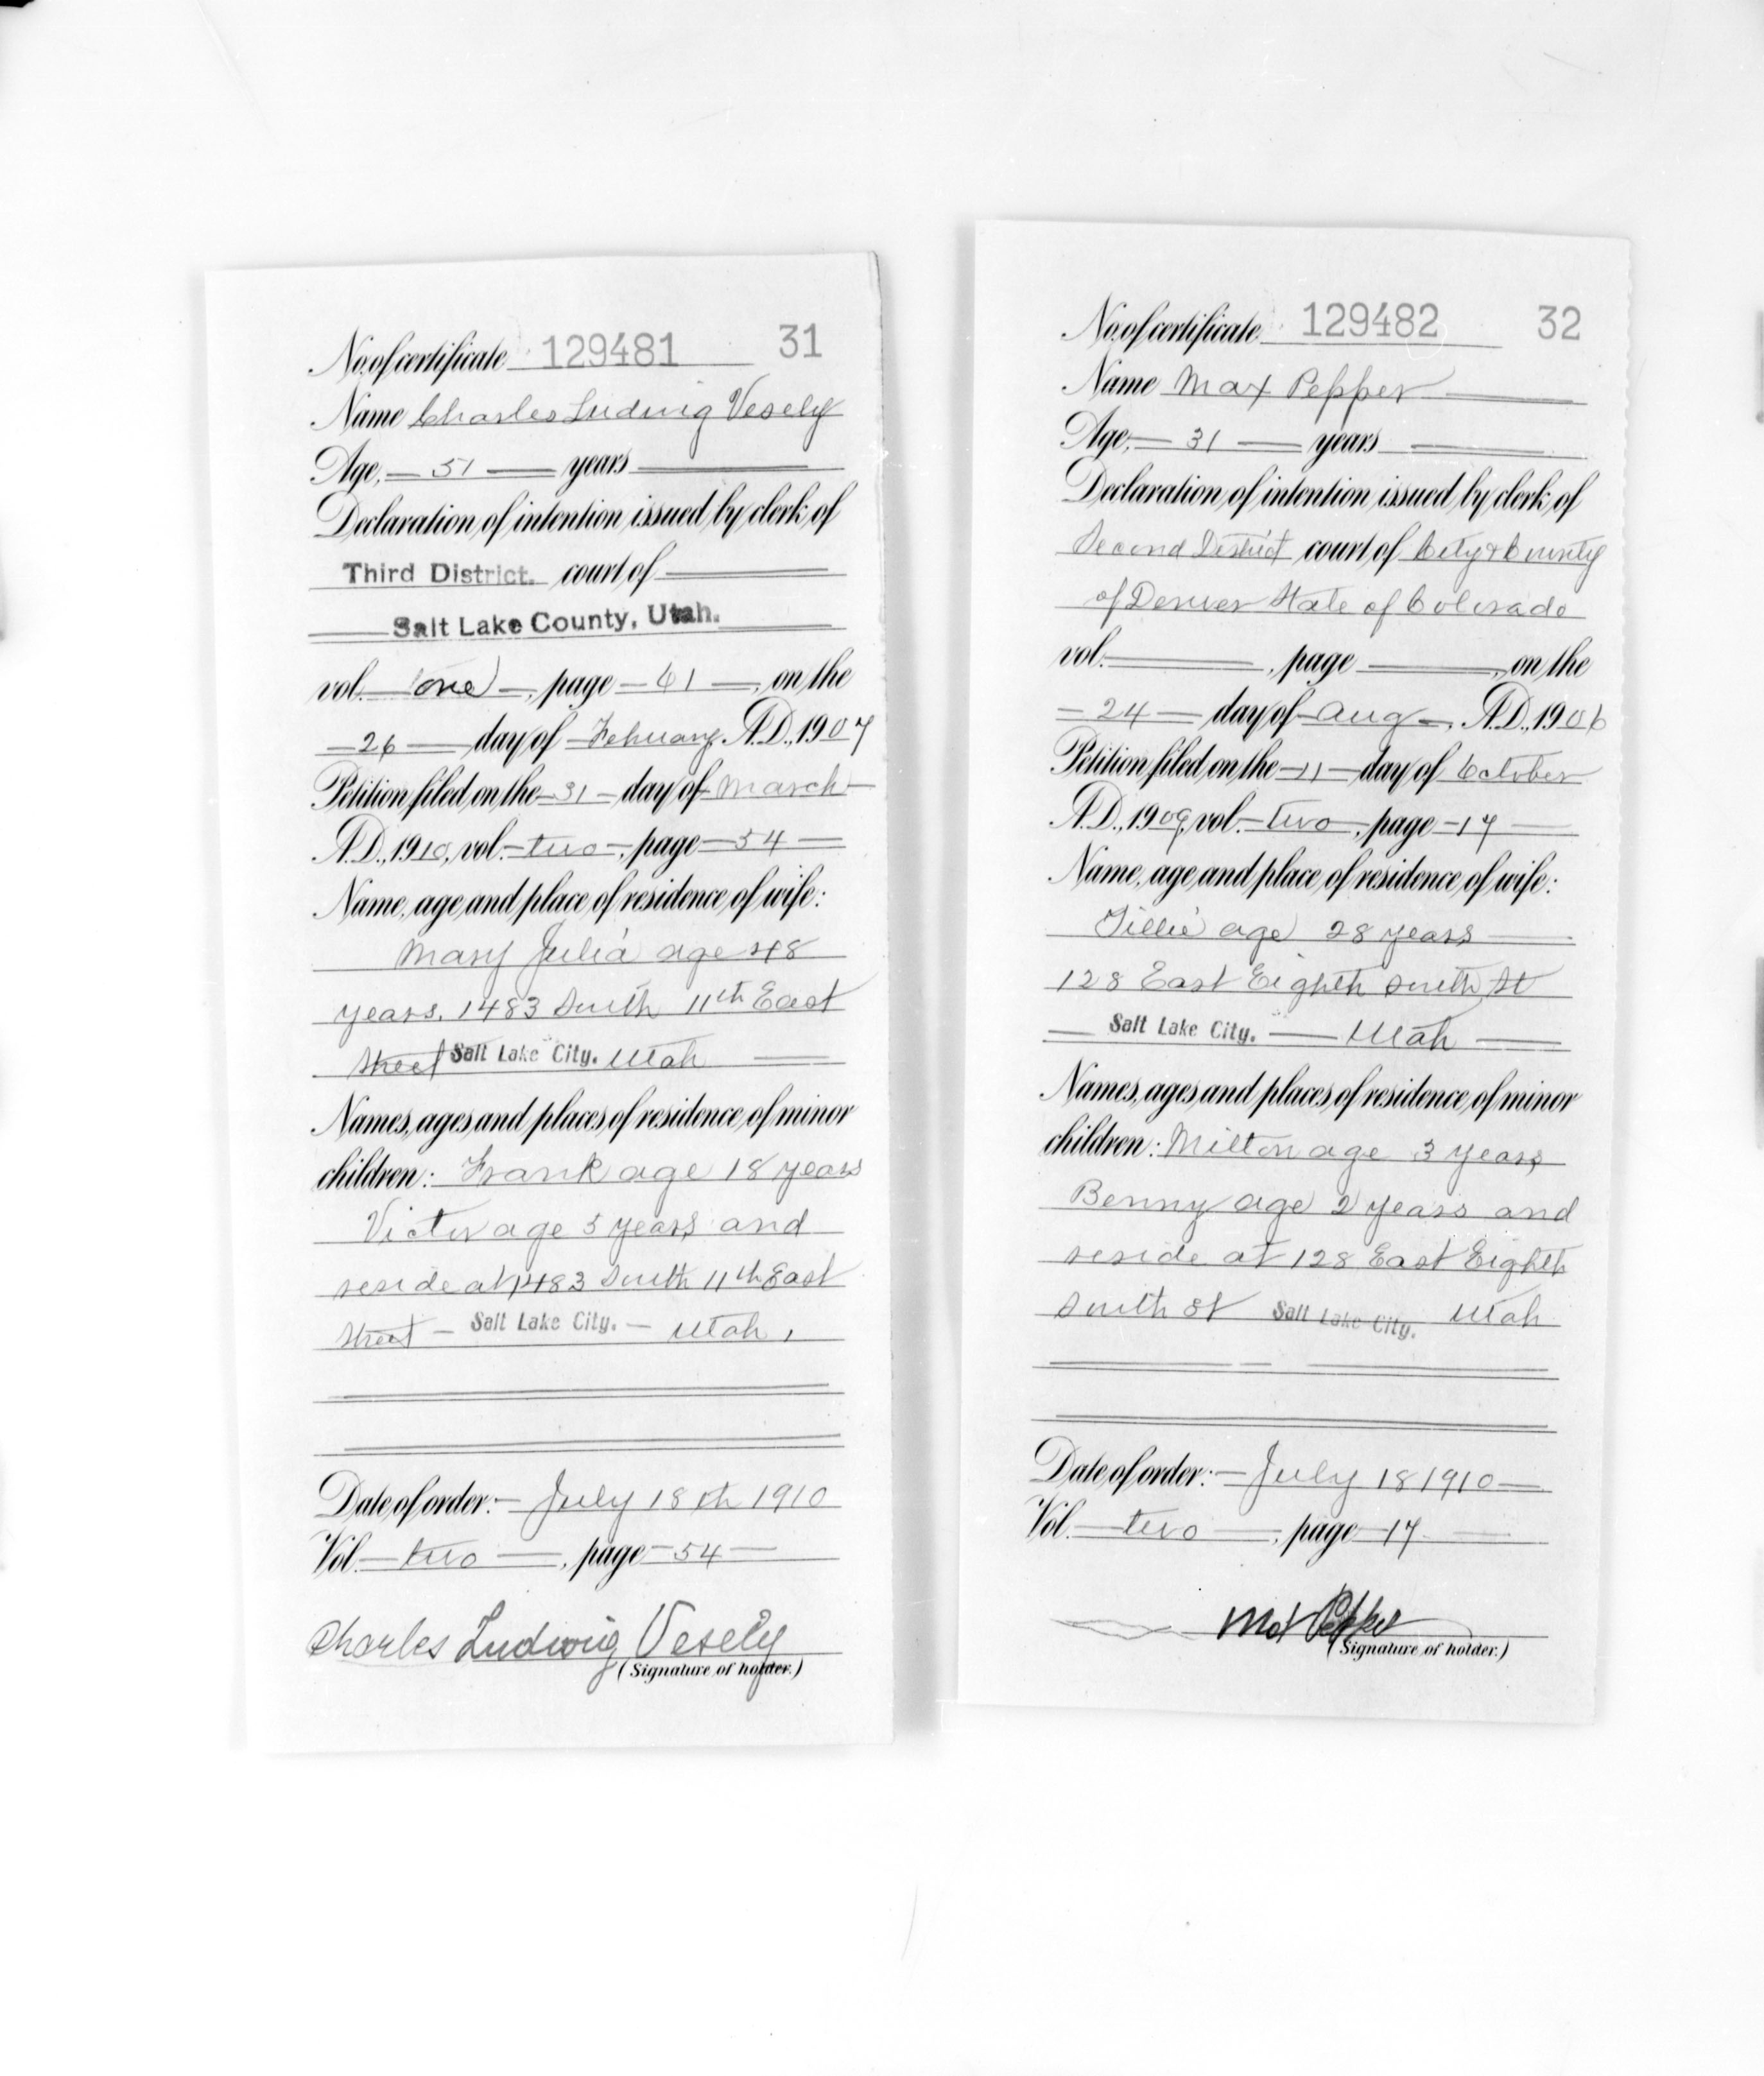 No. of certificate 129481 31
Name Charles Ludwig Vesely
Age, 51 years
Declaration of intention issued by clerk of
Third District. court of
Salt Lake County, Utah.
vol. one, page 61, on the
26 day of February, A.D., 1907
Petition filed on the 31 day of March
A.D., 1910, vol. two, page 54
Name, age and place of residence of wife:
Mary Julia age 48
years. 1483 South 11th East
Street Salt Lake City. Utah
Names, ages and places of residence of minor
children: Frank age 18 years
Victor age 5 years and
reside at 1483 South 11th East
Street - Salt Lake City. - Utah.
Date of order: July 18th 1910
Vol. two, page 54
Charles Ludwig Vesely
(Signature of holder.)
No. of certificate 129482 32
Name Max Pepper
Age, 31 years
Declaration of intention issued by clerk of
Second District court of City & County
of Denver State of Colorado
vol. , page , on the
24 day of Aug, A.D., 1906
Petition filed on the 11 day of October
A.D., 1909, vol. two, page 17
Name, age and place of residence of wife:
Tillie age 28 years
128 East Eighth South St
Salt Lake City. Utah
Names, ages and places of residence of minor
children: Milton age 3 years
Benny age 2 years and
reside at 128 East Eighth
South St Salt Lake City. Utah
Date of order: July 18 1910
Vol. two, page 17
Max Pepper
(Signature of holder.)